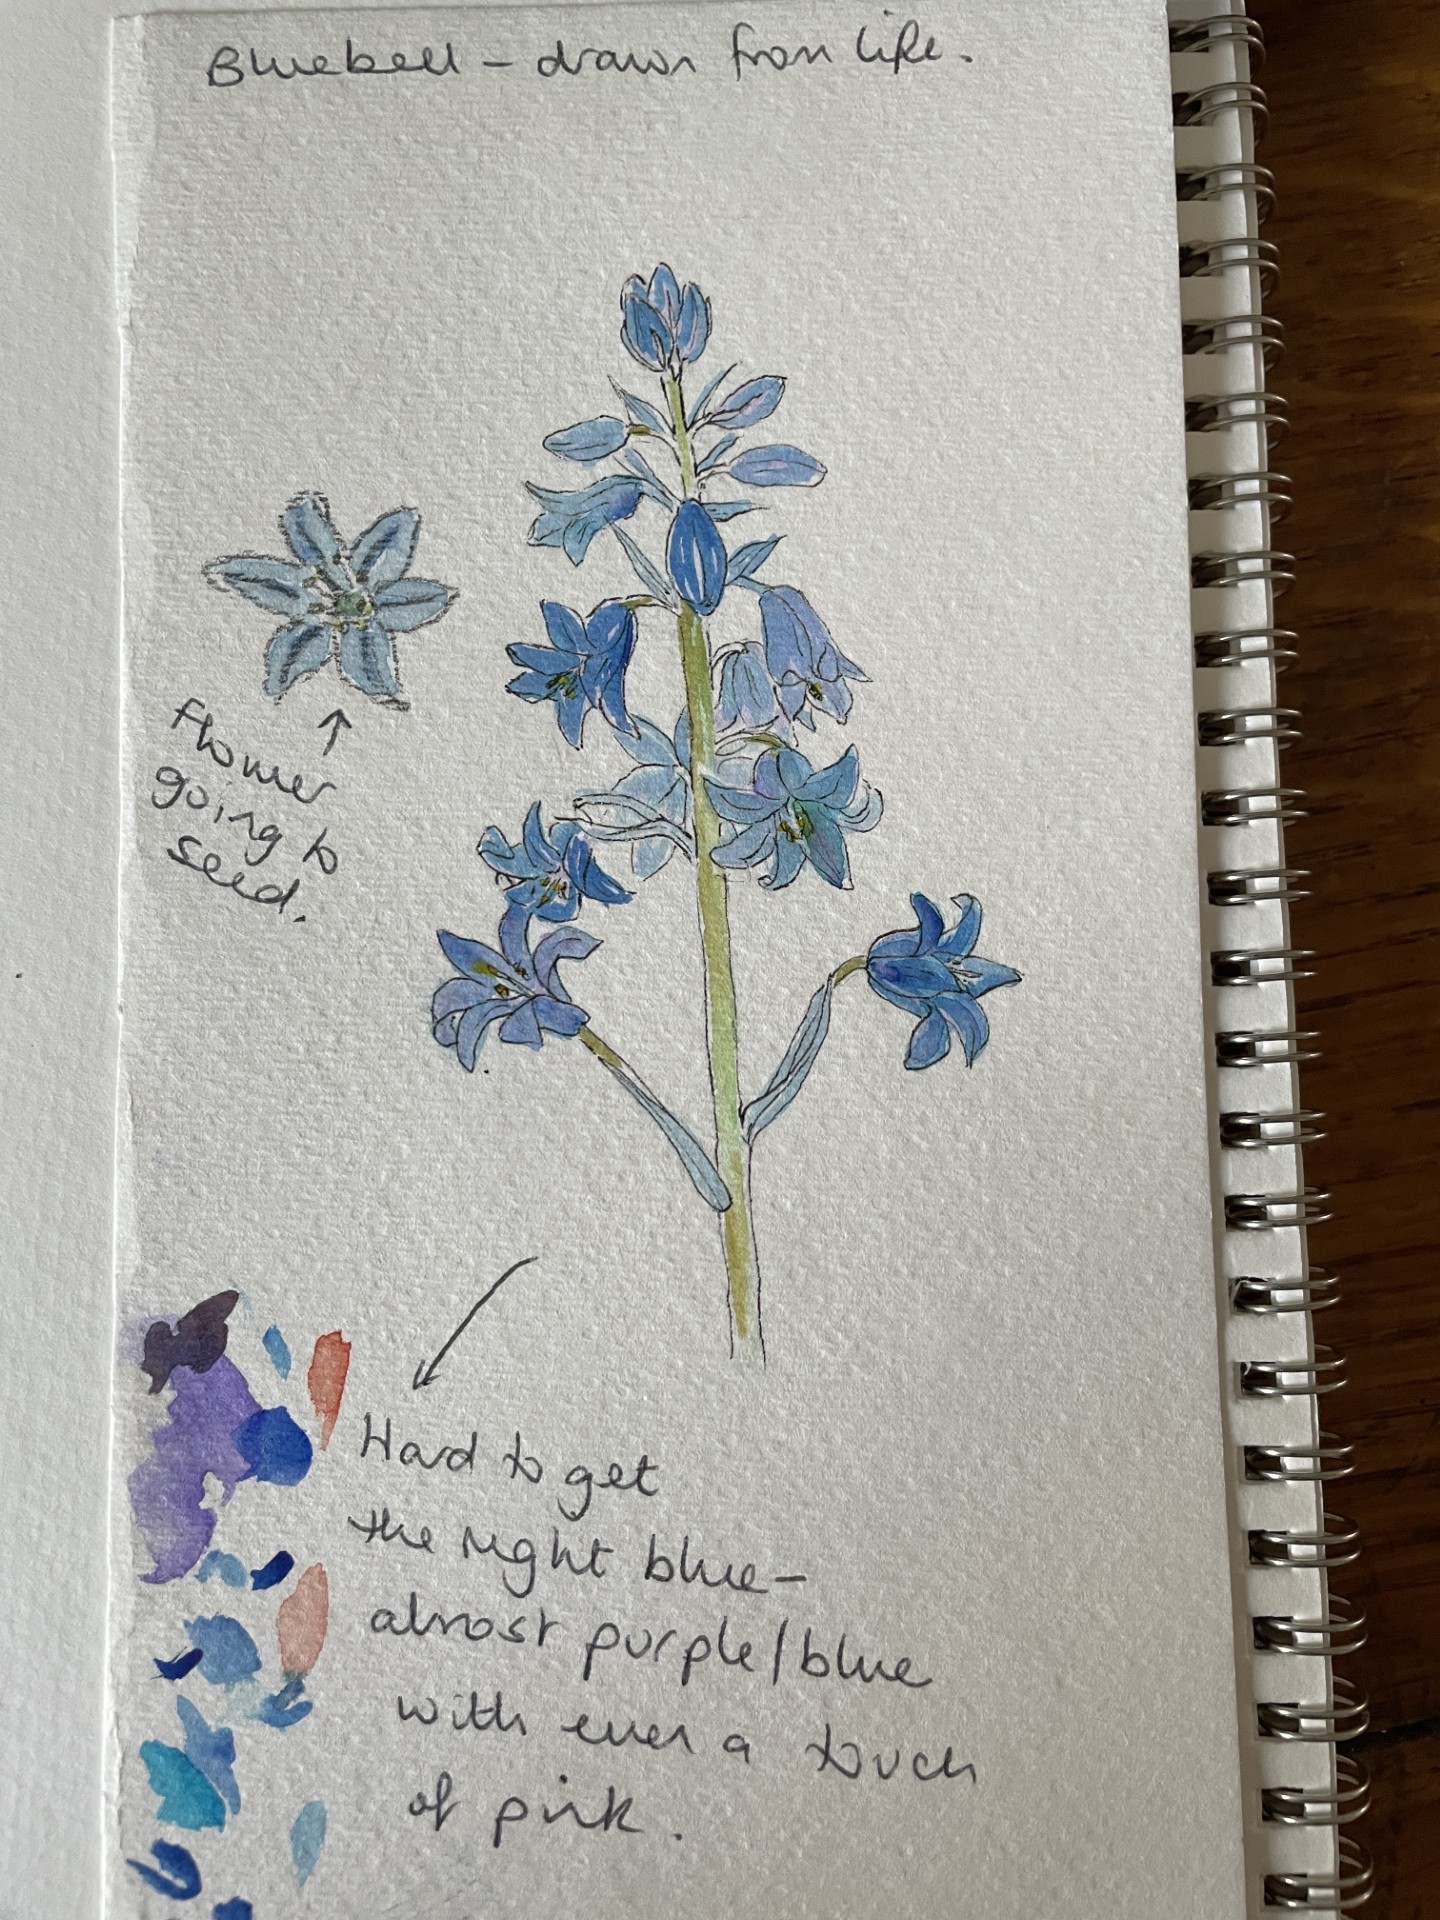 Bluebell - drawn from life.
Flower
going to
seed.
Hard to get
the right blue-
almost purple/blue
with even a touch
of pink.